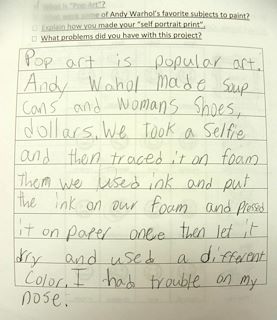 What is "Pop Art"?
What were some of Andy Warhol's favorite subjects to paint?
Explain how you made your "self portrait print".
What problems did you have with this project?
Pop art is popular art.
Andy Wahol made soup
cans and womans shoes,
dollars. We took a selfie
and then traced it on foam
them we used ink and put
the ink on our foam and pressed
it on paper once then let it
dry and used a different
color. I had trouble on my
nose.